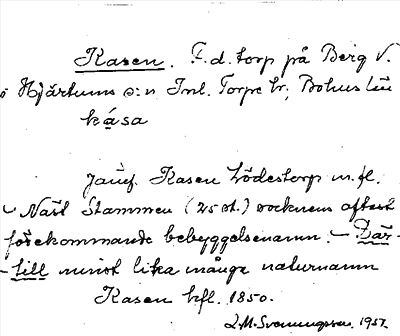 Kasen. F.d. torp på Berg V.
i Hjärtums s:n Inl. Torpe hr, Bohus län
kása
Jämf. Kasen Lödestorp m.fl.
– Näst Stammen (25 st.) socknens oftast
förekommande bebyggelsenamn. – Där-
-till minst lika många naturnamn
Kasen hfl. 1850.
L.M. Svenungsson. 1957